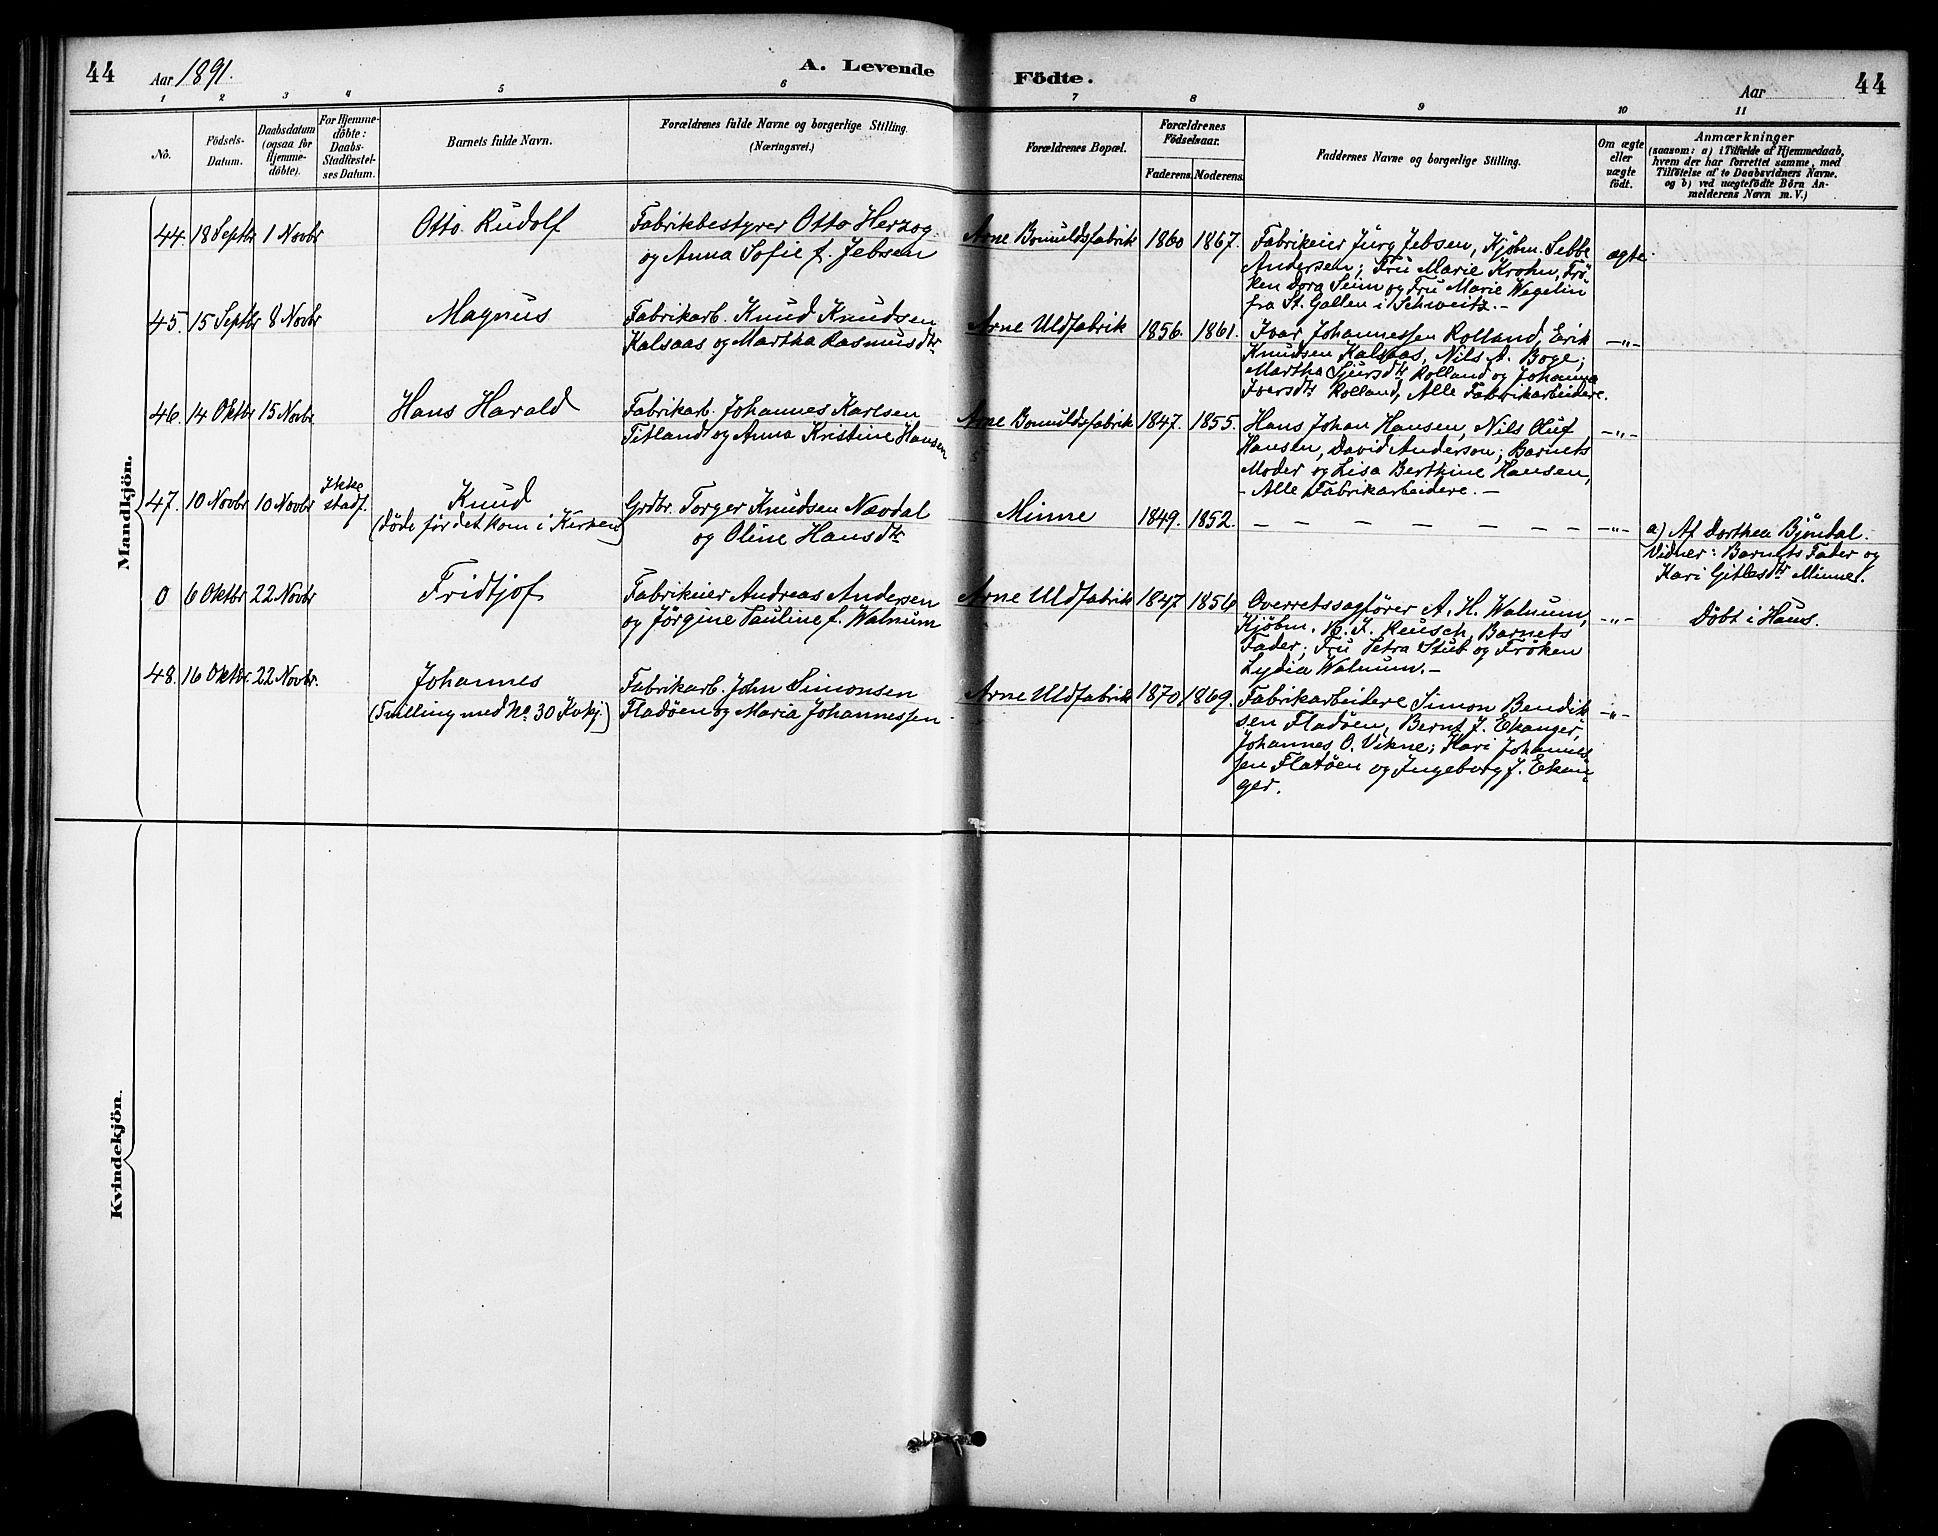 44 Aar 1891. A. Levende Födte. Aar 44
1 2 3 4 5 6 7 8 9 10 11
No.
Födsels-
Datum.
Daabsdatum
(ogsaa for
Hjemme-
döbte).
For Hjemme-
döbte:
Daabs-
Stadfæstel-
ses Datum.
Barnets fulde Navn.
Forældrenes fulde Navne og borgerlige Stilling.
(Næringsvei.)
Forældrenes Bopæl.
Forældrenes
Födselsaar.
Faderens. Moderens.
Faddernes Navne og borgerlige Stilling.
Om ægte
eller
uægte
födt.
Anmærkninger
(saasom: a) i Tilfælde af Hjemmedaab,
hvem der har forrettet samme, med
Tilföielse af to Daabsvidners Navne.
og b) ved uægtefödte Börn An-
melderens Navn m. V.)
Mandkjön.
44. 18 Septbr 1 Novbr Otto Rudolf
Fabrikbestyrer Otto Herzog
og Anna Sofie f. Jebsen
Arne Bomuldsfabrik 1860 1867.
Fabrikeier Jürg Jebsen, Kjøbm. Sebbe
Andersen; Fru Marie Krohn, Frö
ken Dora Seim og Fru Marie Wegelin
fra St. Gallen i Schweitz. –
ægte
45. 15 Septbr 8 Novbr Magnus
Fabrikarb. Knud Knudsen
Kalsaas og Martha Rasmusdtr
Arne Uldfabrik 1856. 1861.
Ivar Johannessen Rolland, Erik
Knudsen Kalsaas, Nils A. Boge;
Martha Sjursdtr Rolland og Johanna
Iversdtr Rolland, Alle Fabrikarbeidere.
–"–
46. 14 Oktbr 15 Novbr Hans Harald
Fabrikarb. Johannes Karlsen
Titland og Anna Kristine Hansen
Arne Bomuldsfabrik 1847. 1855.
Hans Johan Hansen, Nils Oluf
Hansen, David Anderson; Barnets
Moder og Lisa Berthine Hansen,
– Alle Fabrikarbeidere. –
–"–
47. 10 Novbr 10 Novbr Ikke
stadf.
Knud
(döde för det kom i Kirken)
Grdbr. Torger Knudsen Nævdal
og Oline Hansdtr
Minne 1849. 1852. – – – – – – – –"–
a) Af Dorthea Bjøndal.
Vidner: Barnets Fader og
Kari Gitlesdtr Minne.
0 6 Oktbr 22 Novbr Fridtjof
Fabrikeier Andreas Andersen
og Jörgine Pauline f. Walnum
Arne Uldfabrik 1847 1856
Overretssagförer A. H. Walnum,
Kjöbm. K. F. Reusch, Barnets
Fader; Fru Petra Stub og Fröken
Lydia Walnum. –
–"– Döbt i Haus.
48. 16 Oktbr. 22 Novbr. Johannes
(Tvilling med No. 30 Kvkj.)
Fabrikarb. John Simonsen
Fladöen og Maria Johannessen
Arne Uldfabrik 1870 1869.
Fabrikarbeidere Simon Bendik
sen Fladöen, Bernt J. Ekanger,
Johannes O. Vikne; Kari Johannes
sen Flatöen og Ingeborg J. Ekan
ger.
–"–
Kvindekjön.